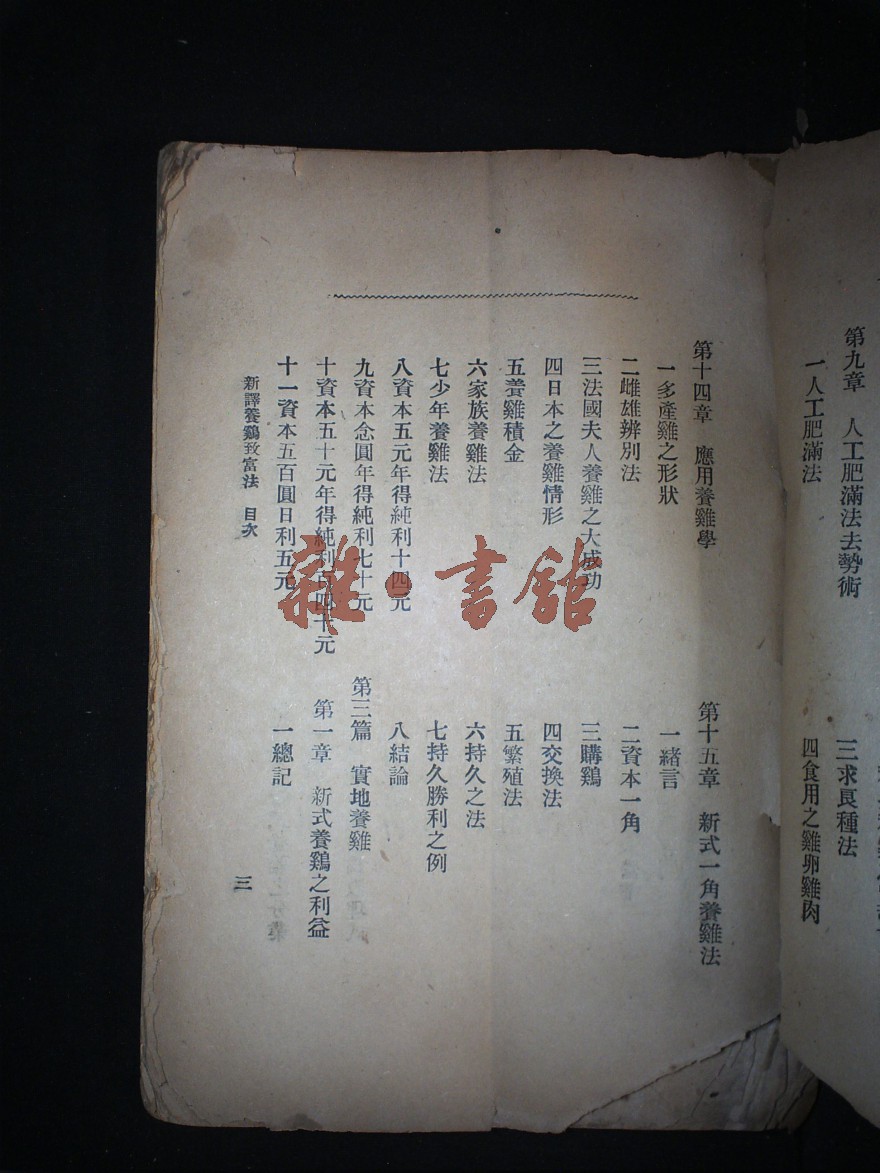 第九章　人工肥滿法去勢術
一人工肥滿法
三求良種法
四食用之雞卵雞肉
第十四章　應用養雞學
一多產雞之形狀
二雌雄辨別法
三法國夫人養雞之大成功
四日本之養雞情形
五養雞積金
六家族養雞法
七少年養雞法
八資本五元年得純利十四元
九資本念圓年得純利七十元
十資本五十元年得純利百四十元
十一資本五百圓日利五元
第十五章　新式一角養雞法
一緒言
二資本一角
三購鷄
四交換法
五繁殖法
六持久之法
七持久勝利之例
八結論
第三篇　實地養雞
第一章　新式養鷄之利益
一總記
新譯養鷄致富法　目次
三
雜·書館